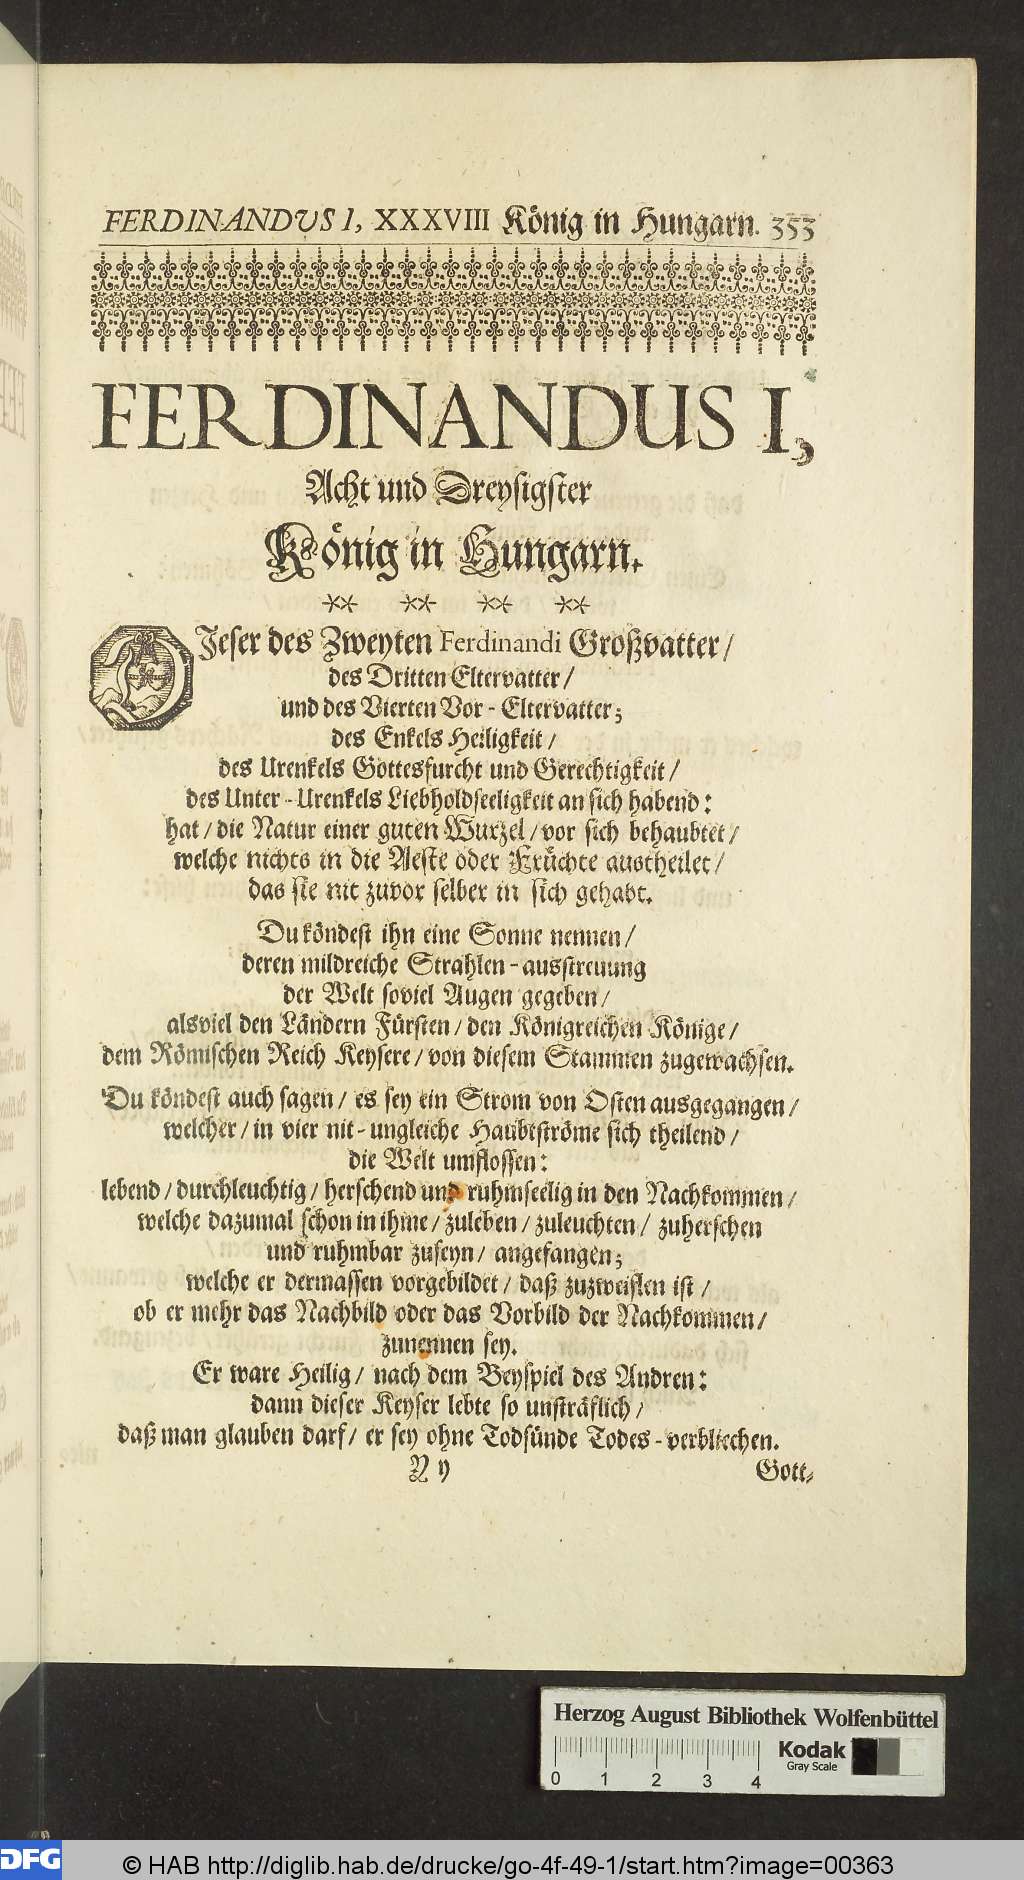 FERDINANDVS I, XXXVIII König in Hungarn. 353
FERDINANDUS I,
Acht und Dreysigster
König in Hungarn.
DIeser des Zweyten Ferdinandi Großvatter/
des Dritten Eltervatter/
und des Vierten Vor-Eltervatter;
des Enkels Heiligkeit/
des Urenkels Gottesfurcht und Gerechtigkeit/
des Unter-Urenkels Liebholdseeligkeit an sich habend:
hat/ die Natur einer guten Wurzel/ vor sich behaubtet/
welche nichts in die Aeste oder Früchte austheilet/
das sie nit zuvor selber in sich gehabt.
Du köndest ihn eine Sonne nennen/
deren mildreiche Strahlen-ausstreuung
der Welt soviel Augen gegeben/
alsviel den Ländern Fürsten/ den Königreichen Könige/
dem Römischen Reich Keysere/ von diesem Stammen zugewachsen.
Du köndest auch sagen/ es sey ein Strom von Osten ausgegangen/
welcher/ in vier nit-ungleiche Haubtströme sich theilend/
die Welt umflossen:
lebend/ durchleuchtig/ herschend und ruhmseelig in den Nachkommen/
welche dazumal schon in ihme/ zuleben/ zuleuchten/ zuherschen
und ruhmbar zuseyn/ angefangen;
welche er dermassen vorgebildet/ daß zuzweislen ist/
ob er mehr das Nachbild oder das Vorbild der Nachkommen/
zunennen sey.
Er ware Heilig/ nach dem Beyspiel des Andren:
dann dieser Keyser lebte so unsträflich/
daß man glauben darf/ er sey ohne Todsünde Todes-verbliechen.
Y y Gott-
Herzog August Bibliothek Wolfenbüttel
0 1 2 3 4
Kodak
Gray Scale
DFG
© HAB http://diglib.hab.de/drucke/go-4f-49-1/start.htm?image=00363